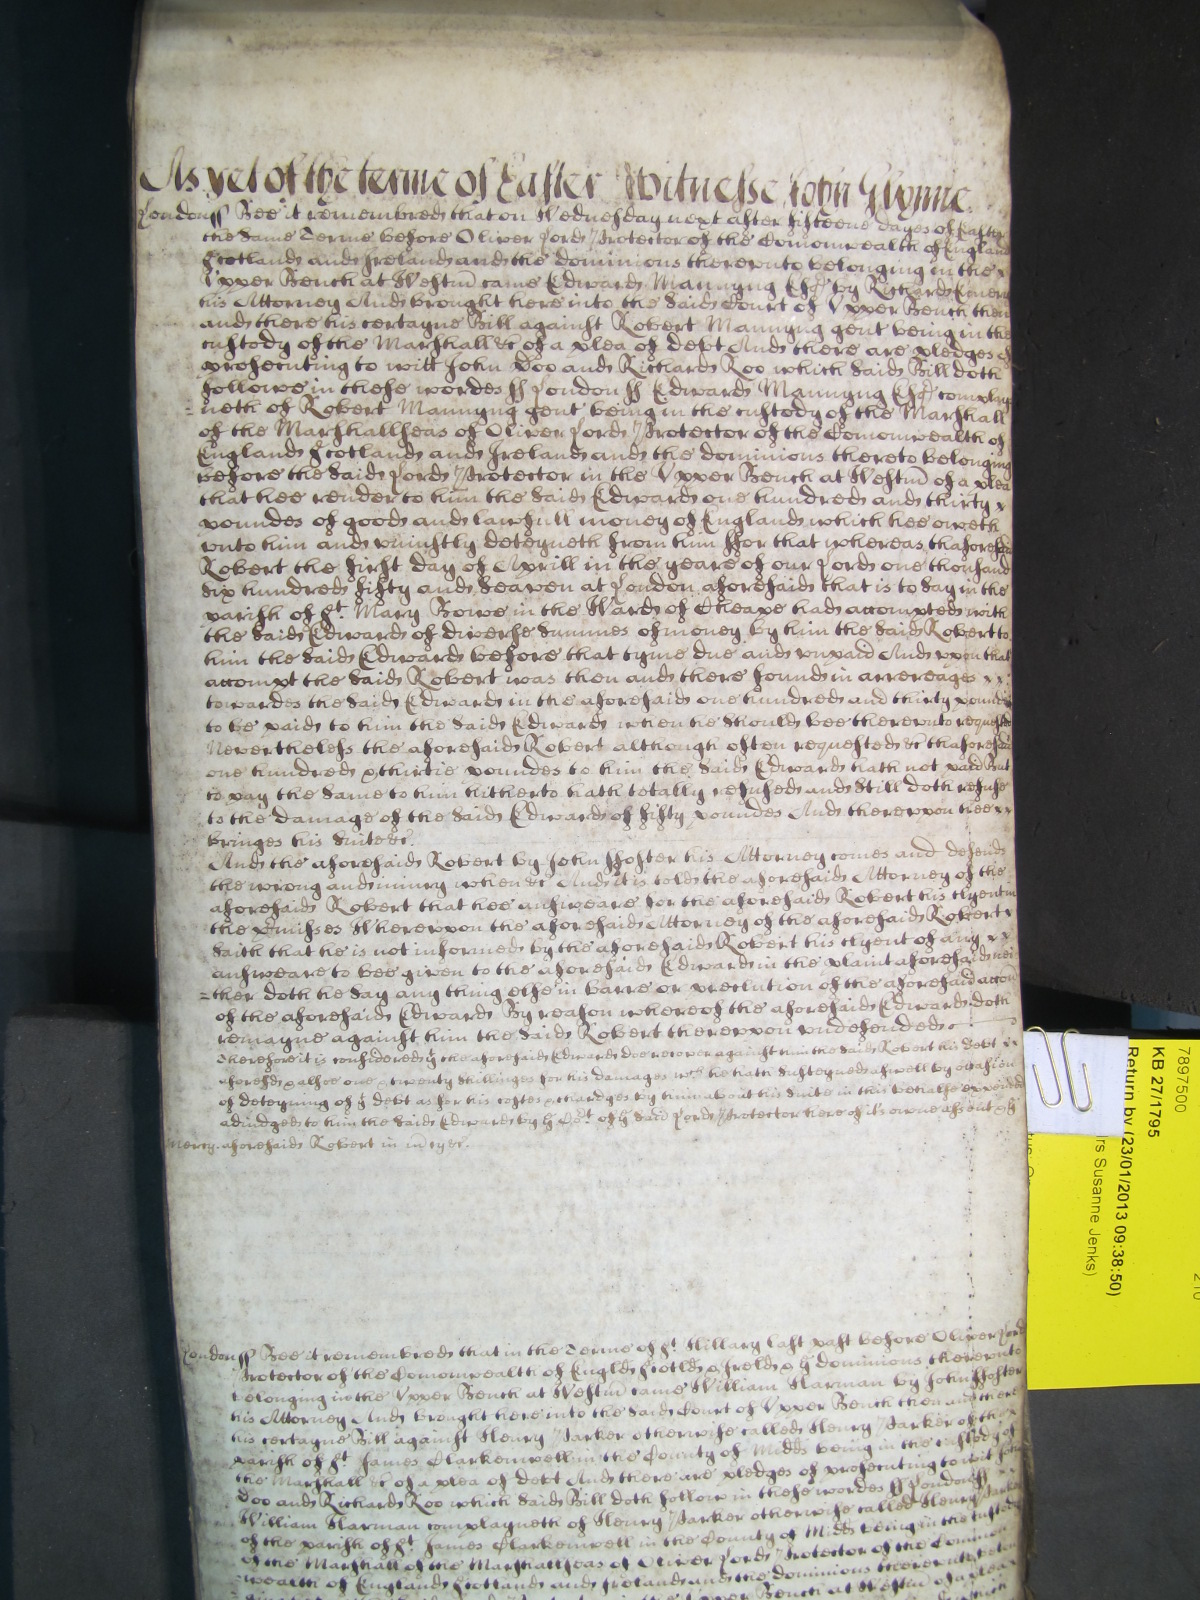 As yet of the terme of Easter Witnesse John Glynne.
London ss Bee it remembred that on Wednesday next after fifteene dayes of Easter
the same Terme before Oliver Lord Protector of the Comonwealth of England
Scotland and Ireland and the dominions thereunto belonging in the x
Upper Bench at Westm came Edward Mannyng Esqr by Richard
his Attorney And brought here into the said Court of Upper Bench then
and there his certayne Bill against Robert Mannyng gent being in the
custody of the Marshall &c of a plea of debt And there are pledges of
prosecuting to witt John Doo and Richard Roo which said Bill doth
followe in these wordes ss London ss Edward Mannyng Esqr complay
=neth of Robert Mannyng gent being in the custody of the Marshall
of the Marshallseas of Oliver Lord Protector of the Comonwealth of
England Scotland and Ireland and the dominions thereto belonging
before the said Lord Protector in the Upper Bench at Westm of a plea
that hee render to him the said Edward one hundred and thirty x
poundes of good and lawfull money of England which hee oweth
unto him and uniustly deteyneth from him ffor that whereas thaforesaid
Robert the first day of Aprill in the yeare of our Lord one thousand
six hundred fifty and seaven at London aforesaid that is to say in the
parish of St. Mary Bowe in the Ward of Cheape had accompted with
the said Edward of diverse summes of money by him the said Robert to
him the said Edward before that tyme due and unpaid And upon that
accompt the said Robert was then and there found in arrereages x x
towardes the said Edward in the aforesaid one hundred and thirty poundes
to be paid to him the said Edward when he should bee thereunto requested
Neverthelesse the aforesaid Robert although often requested &c thaforesaid
one hundred & thirtie poundes to him the said Edward hath not paid But
to pay the same to him hitherto hath totally refused and still doth refuse
to the damage of the said Edward of fifty poundes And thereupon hee x x
bringes his suite &c.
And the aforesaid Robert by John ffoster his Attorney comes and defends
the wrong and iniury when &c And it is told the aforesaid Attorney of the
aforesaid Robert that hee answeare for the aforesaid Robert his clyent in
the pmisses Whereupon the aforesaid Attorney of the aforesaid Robert x
saith that he is not informed by the aforesaid Robert his clyent of any x x
answeare to bee given to the aforesaid Edward in the plaint aforesaid nei
=ther doth he say any thing else in barre or preclution of the aforesaid accon
of the aforesaid Edward By reason whereof the aforesaid Edward doth
remayne against him the said Robert thereupon undefended
Therefore it is considered yt the aforesaid Edward doe recover against him the said Robert his debt x x
aforesd & alsoe one & twenty shillinges for his damages wch he hath susteyned aswell by occasion
of deteyning of ye debt as for his costes & chardges by him about his suite in this behalfe expended
adiudged to him the said Edward by ye Cort of ye said Lord Protector here of his owne assent & ye
Mercy. aforesaid Robert in m cye &c.
London ss Bee it remembred that in the Terme of St. Hillary last past before Oliver Lord
Protector of the Comonwealth of Engld Scotld & Ireld & ye dominions thereunto
belonging in the Upper Bench at Westm came William Harman by John ffoster
his Attorney And brought here into the said Court of Upper Bench then and there
his certayne Bill against Henry Parker otherwise called Henry Parker of the x
parish of St. James Clarkenwell in the County of Midds being in the custody of
the Marshall &c of a plea of debt And there are pledges of prosecuting to wit John
Doo and Richard Roo which said Bill doth follow in these wordes ss London ss
William Harman complayneth of Henry Parker otherwise called Henry Parker
of the parish of St. James Clarkenwell in the County of Midds being in the custody
of the Marshall of the Marshallseas of Oliver Lord Protector of the Common
=wealth of England Scotland and Ireland and the dominions thereunto
Upper Bench at Westm of a plea
7897500
KB 27/1795
Return by (23/01/2013 09:38:50)
rs Susanne Jenks)
210